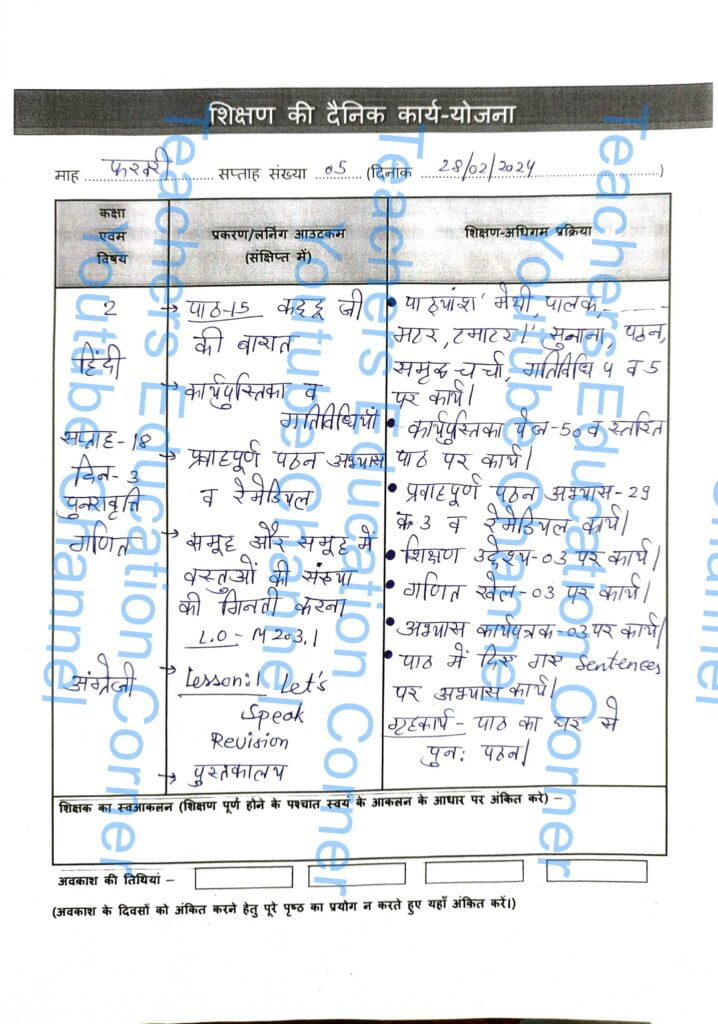 शिक्षण की दैनिक कार्य-योजना
माह फरवरी सप्ताह संख्या 05 (दिनांक 28/02/2024)
कक्षा
एवम
विषय
प्रकरण/लर्निंग आउटकम
(संक्षिप्त में)
शिक्षण-अधिगम प्रक्रिया
2
हिंदी
सप्ताह-18
दिन-3
पुनरावृत्ति
गणित
अंग्रेजी
→ पाठ-15 कद्दू जी
की बारात
→ कार्यपुस्तिका व
गतिविधियाँ
→ प्रवाहपूर्ण पठन अभ्यास
व रेमेडियल
→ समूह और समूह में
वस्तुओं की संख्या
की गिनती करना
L.O - M 203.1
→ Lesson:1 Let's
Speak
Revision
→ पुस्तकालय
• पाठ्यांश 'मेथी, पालक, -----
मटर, टमाटर।' सुनाना, पठन,
समृद्ध चर्चा, गतिविधि 4 व 5
पर कार्य।
• कार्यपुस्तिका पेज-50 व स्तरित
पाठ पर कार्य।
• प्रवाहपूर्ण पठन अभ्यास-29
क 3 व रेमेडियल कार्य।
• शिक्षण उद्देश्य-03 पर कार्य।
• गणित खेल-03 पर कार्य।
• अभ्यास कार्यपत्रक-03 पर कार्य।
• पाठ में दिए गए Sentences
पर अभ्यास कार्य।
गृहकार्य - पाठ का घर से
पुनः पठन।
शिक्षक का स्वआकलन (शिक्षण पूर्ण होने के पश्चात स्वयं के आकलन के आधार पर अंकित करें) –
अवकाश की तिथियां –
(अवकाश के दिवसों को अंकित करने हेतु पूरे पृष्ठ का प्रयोग न करते हुए यहाँ अंकित करें।)
Teachers Education Corner
Youtube Channel
Teachers Education Corner
Youtube Channel
Teachers Education Corner
Youtube Channel